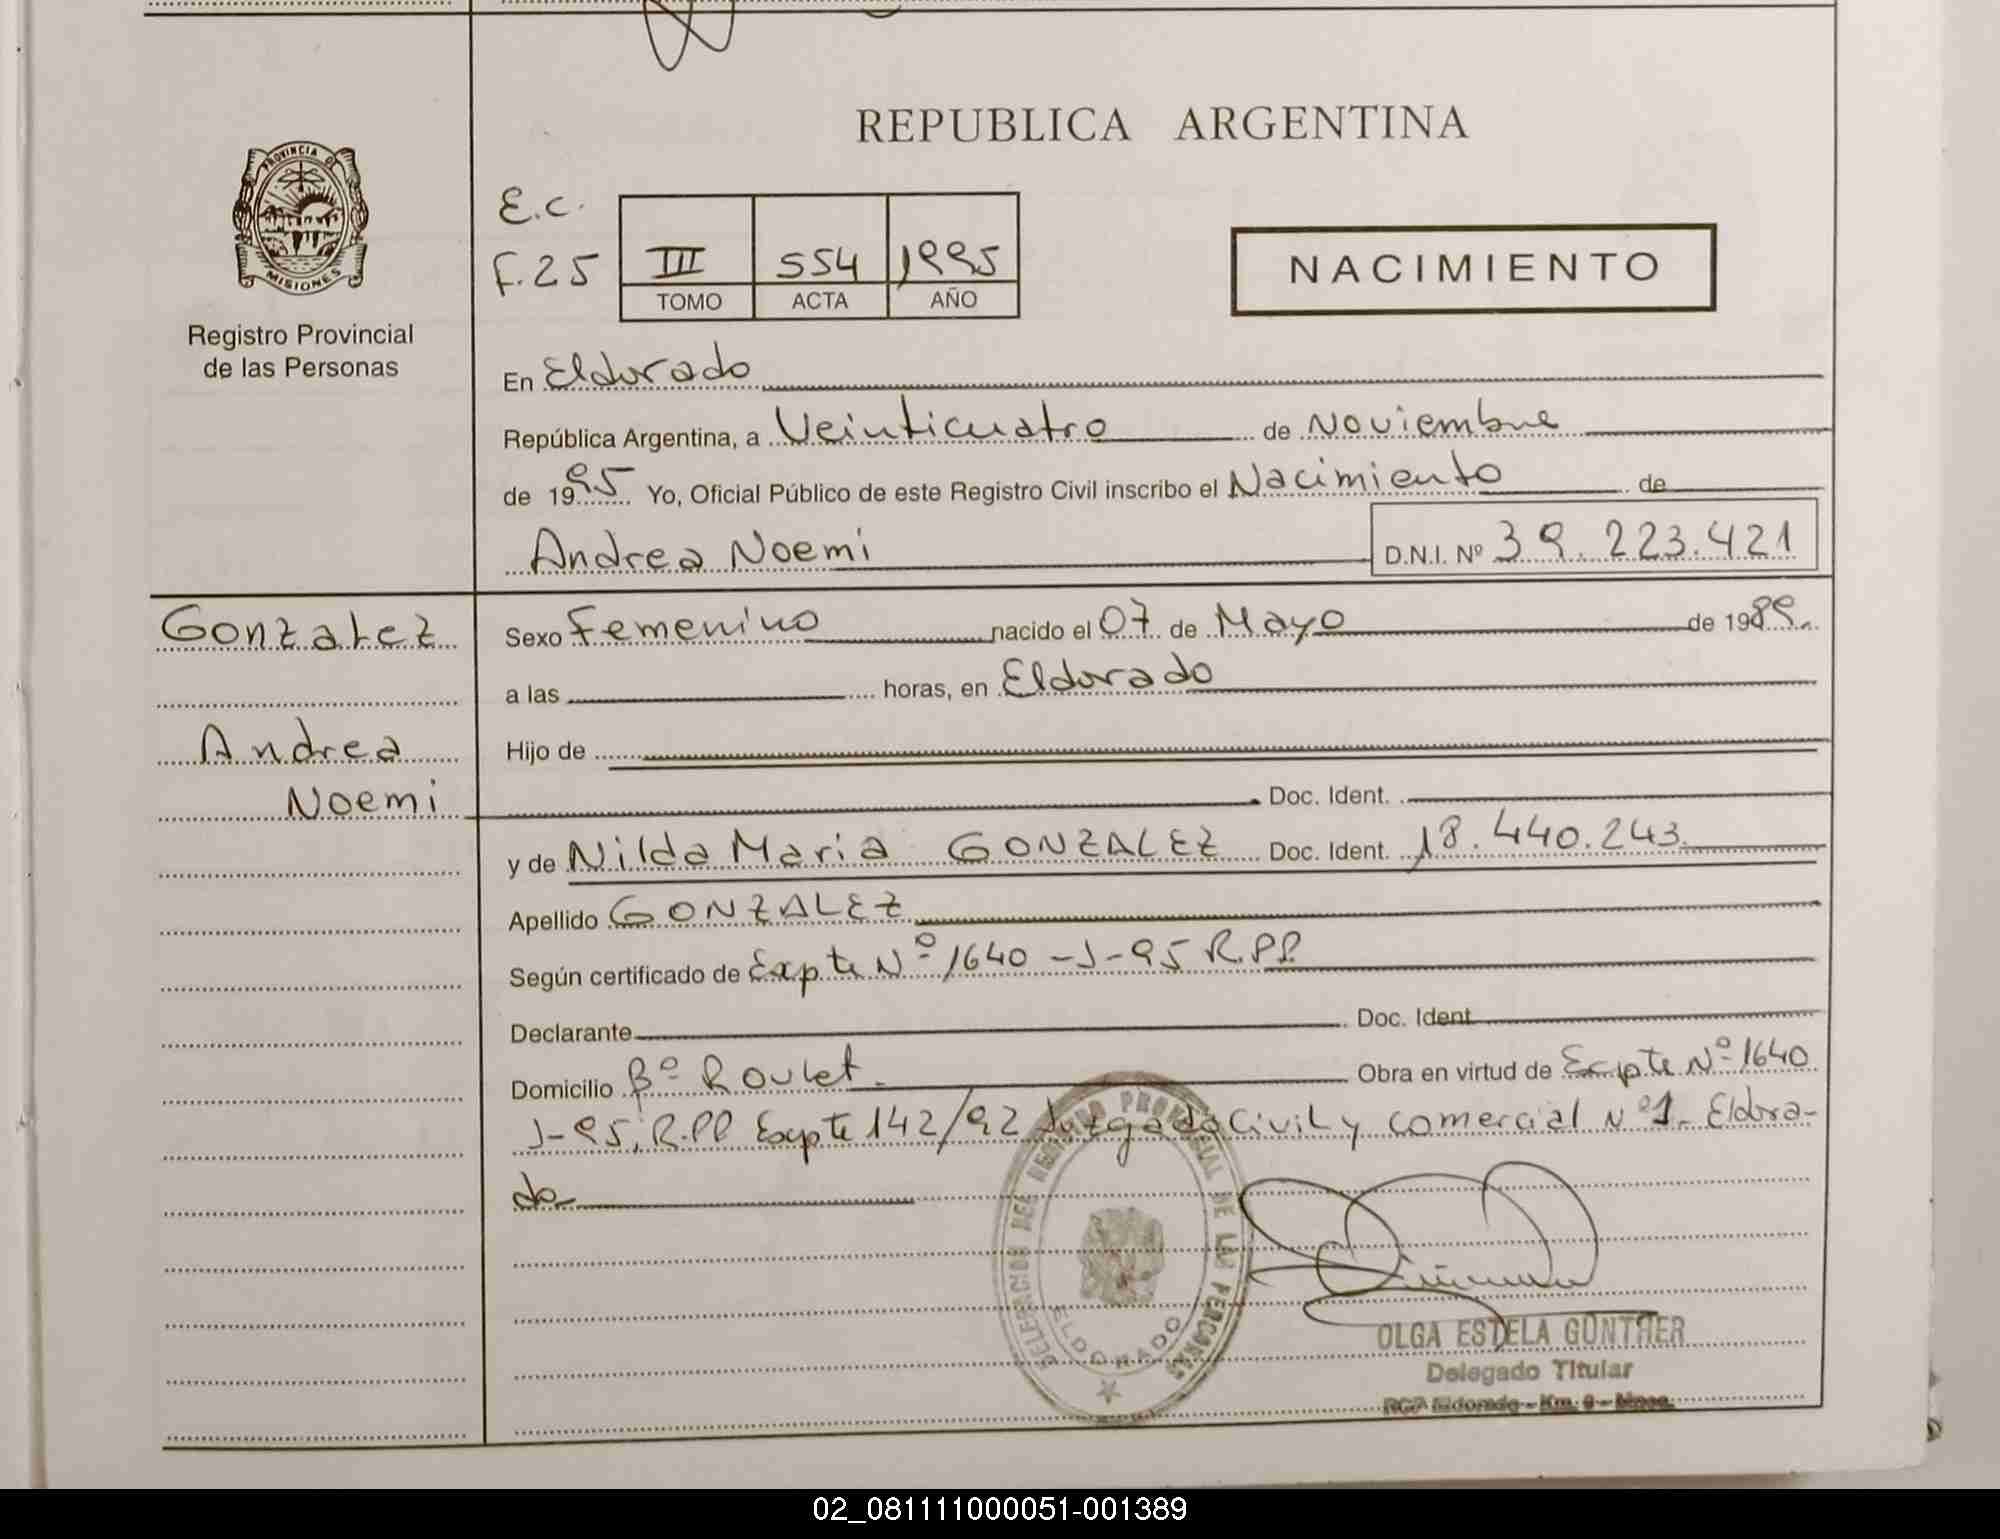 REPUBLICA ARGENTINA
PROVINCIA DE
MISIONES
Registro Provincial
de las Personas
E.C.
F.25
III 554 1995
TOMO ACTA AÑO
NACIMIENTO
En Eldorado
República Argentina, a Veinticuatro de Noviembre
de 1995 Yo, Oficial Público de este Registro Civil inscribo el Nacimiento de
Andrea Noemi D.N.I. Nº 39.223.421
Gonzalez
Andrea
Noemi
Sexo Femenino nacido el 07 de Mayo de 1989.
a las horas, en Eldorado
Hijo de
Doc. Ident.
y de Nilda Maria GONZALEZ Doc. Ident. 18.440.243
Apellido GONZALEZ
Según certificado de Expte Nº 1640-J-95 R.PP.
Declarante Doc. Ident
Domicilio Bº Roulet. Obra en virtud de Expte Nº 1640
J-95, R.PP Expte 142/92 Juzgado Civil y comercial Nº 1. Eldora-
do
DELEGACION DEL REGISTRO PROVINCIAL DE LAS PERSONAS
ELDORADO
OLGA ESTELA GÜNTHER
Delegado Titular
RCP Eldorado - Km. 9 - Mnes.
02_081111000051-001389